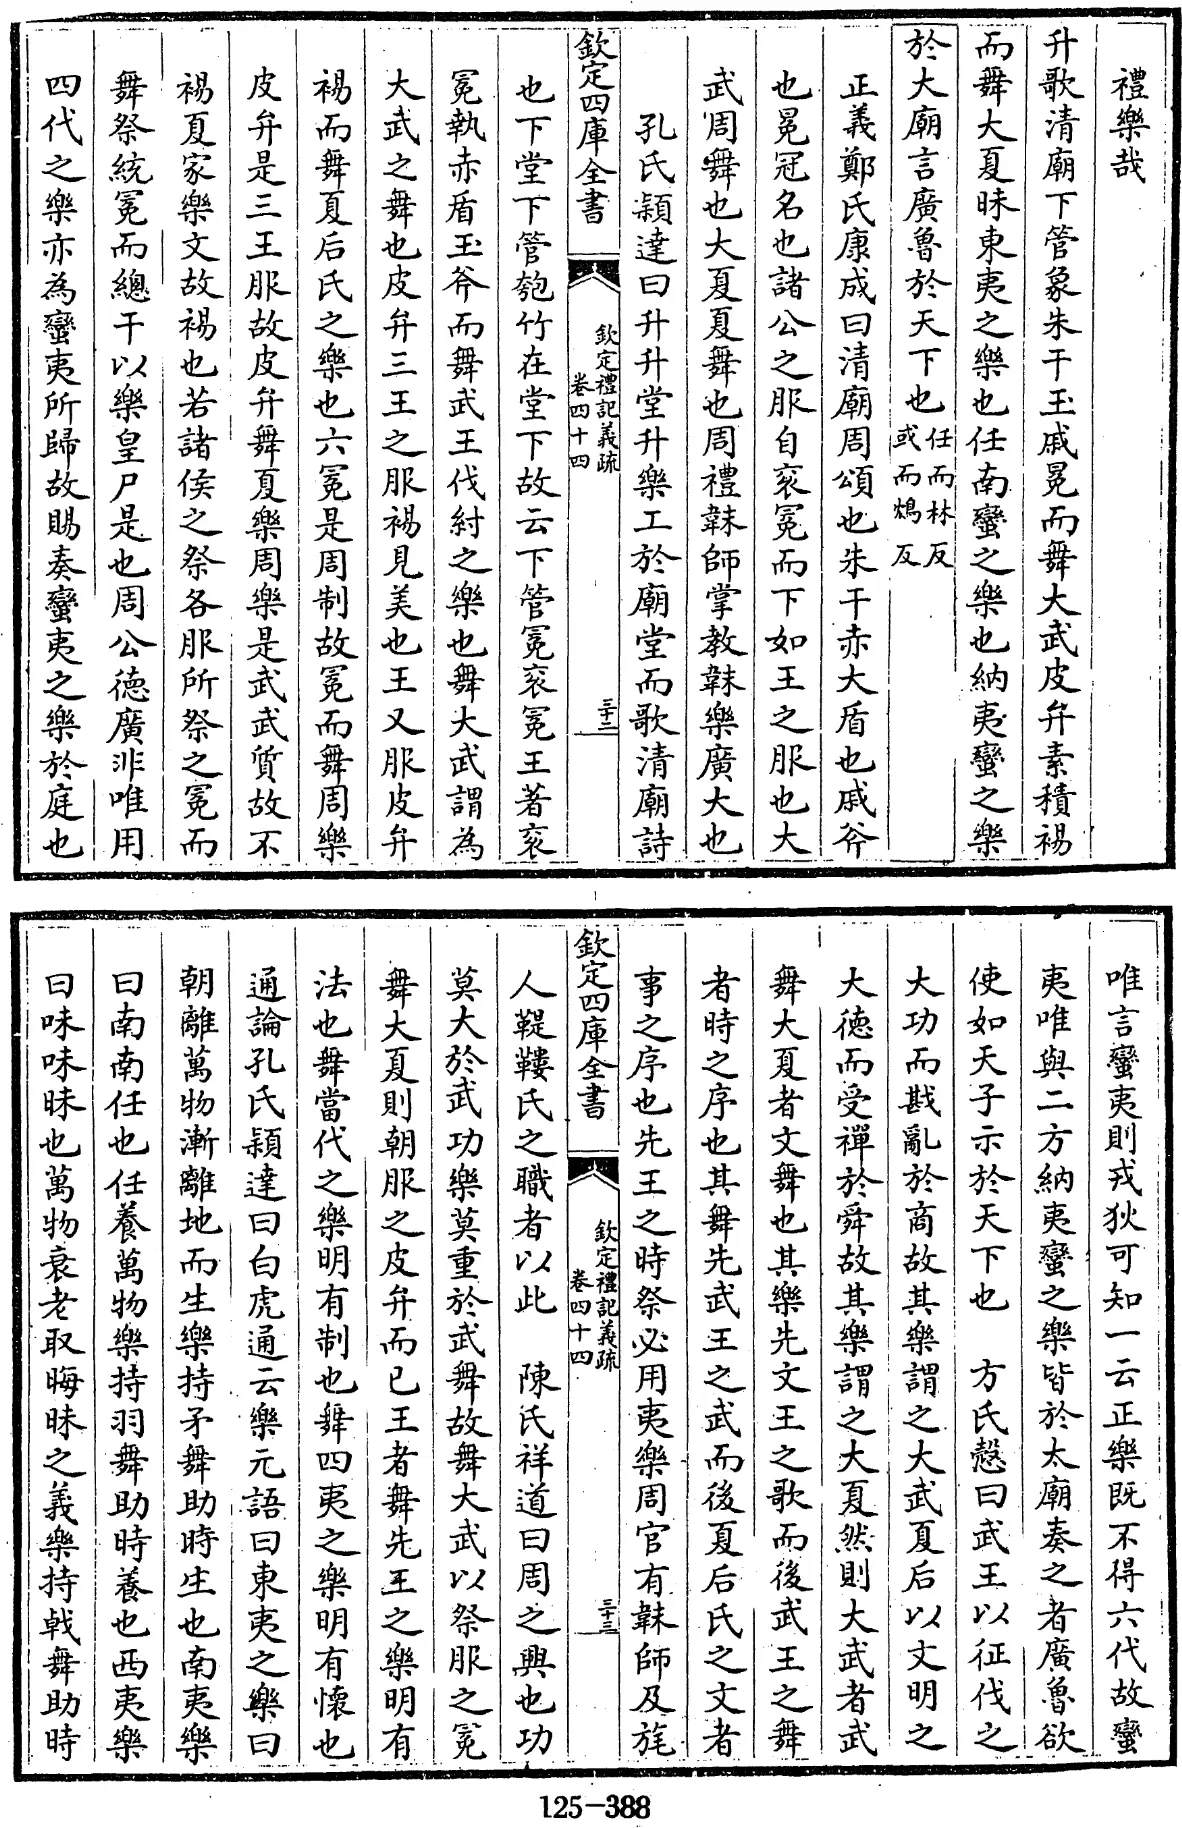 禮樂哉
升歌清廟下管象朱干玉戚冕而舞大武皮弁素積裼
而舞大夏昧東夷之樂也任南蠻之樂也納夷蠻之樂
於大廟言廣魯於天下也任而林反或而鴆反
正義鄭氏康成曰清廟周頌也朱干赤大盾也戚斧
也冕冠名也諸公之服自衮冕而下如王之服也大
武周舞也大夏夏舞也周禮韎師掌教韎樂廣大也
孔氏穎達曰升升堂升樂工於廟堂而歌清廟詩
欽定四庫全書
欽定禮記義疏
卷四十四
三十二
也下堂下管匏竹在堂下故云下管冕衮冕王著衮
冕執赤盾玉斧而舞武王伐紂之樂也舞大武謂為
大武之舞也皮弁三王之服裼見美也王又服皮弁
裼而舞夏后氏之樂也六冕是周制故冕而舞周樂
皮弁是三王服故皮弁舞夏樂周樂是武武質故不
裼夏家樂文故裼也若諸侯之祭各服所祭之冕而
舞祭統冕而總干以樂皇尸是也周公德廣非唯用
四代之樂亦為蠻夷所歸故賜奏蠻夷之樂於庭也
唯言蠻夷則戎狄可知一云正樂既不得六代故蠻
夷唯與二方納夷蠻之樂皆於太廟奏之者廣魯欲
使如天子示於天下也　方氏慤曰武王以征伐之
大功而戡亂於商故其樂謂之大武夏后以文明之
大德而受禪於舜故其樂謂之大夏然則大武者武
舞大夏者文舞也其樂先文王之歌而後武王之舞
者時之序也其舞先武王之武而後夏后氏之文者
事之序也先王之時祭必用夷樂周官有韎師及旄
欽定四庫全書
欽定禮記義疏
卷四十四
三十三
人鞮鞻氏之職者以此　陳氏祥道曰周之興也功
莫大於武功樂莫重於武舞故舞大武以祭服之冕
舞大夏則朝服之皮弁而已王者舞先王之樂明有
法也舞當代之樂明有制也舞四夷之樂明有懷也
通論孔氏穎達曰白虎通云樂元語曰東夷之樂曰
朝離萬物漸離地而生樂持矛舞助時生也南夷樂
曰南南任也任養萬物樂持羽舞助時養也西夷樂
曰味味昧也萬物衰老取晦昧之義樂持戟舞助時
125-388